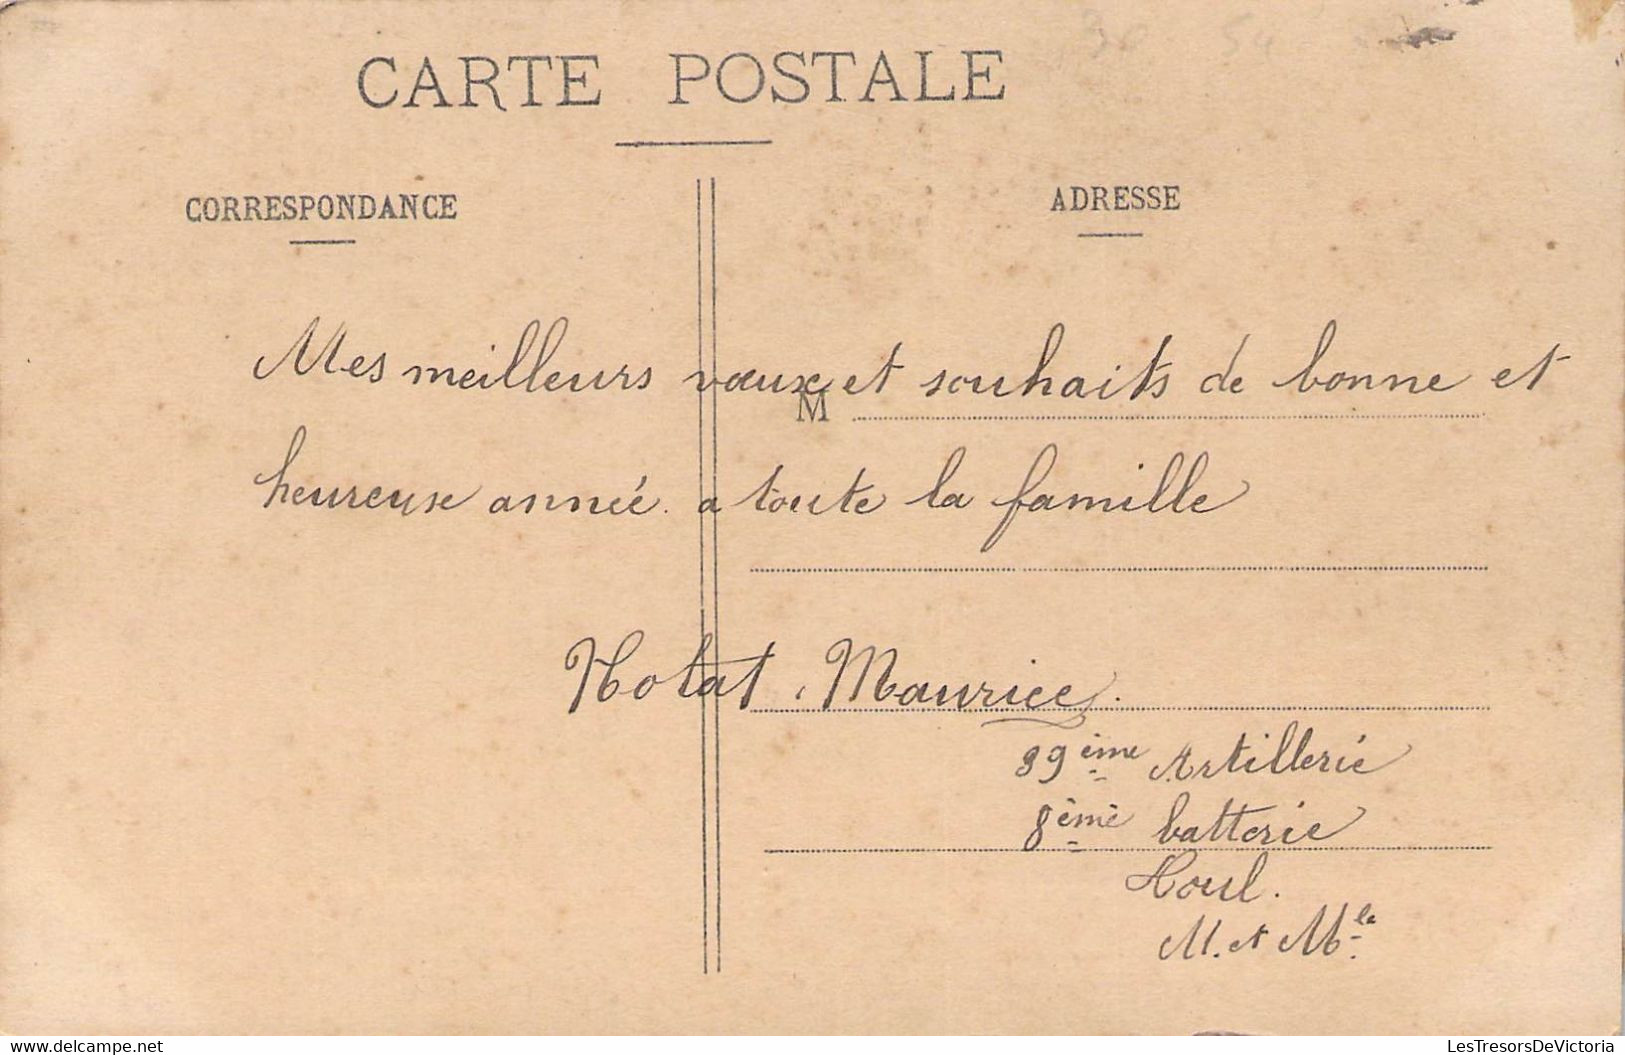 CARTE POSTALE
CORRESPONDANCE
ADRESSE
Mes meilleurs vœux et souhaits de bonne et
M
heureuse année. a toute la famille
Notat, Maurice.
39ème Artillerie
8ème batterie
Toul.
M. et Mle.
LesTresorsDeVictoria
https://www.delcampe.net